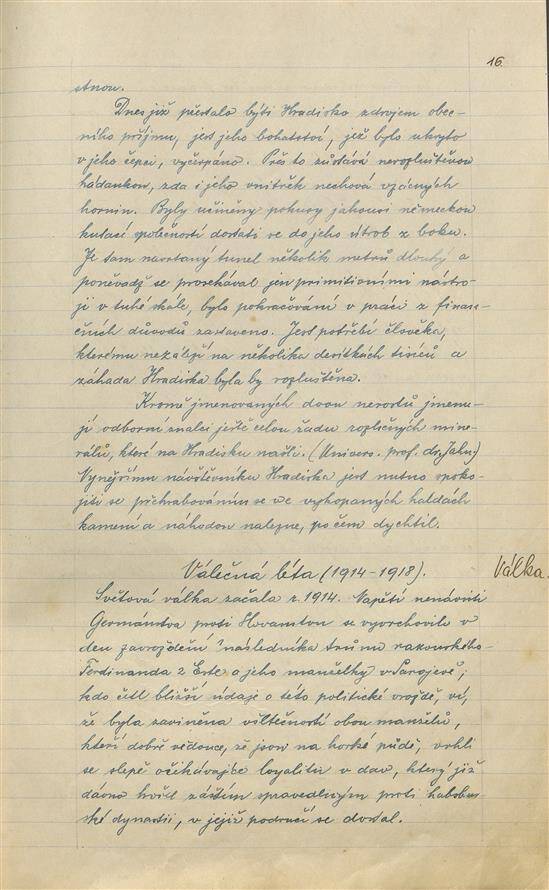 16.
stnou.
Dnes již přestalo býti Hradisko zdrojem obec-
ního příjmu, jest jeho bohatství, jež bylo ukryto
v jeho čepci, vyčerpáno. Přes to zůstává nerozluštěnou
hádankou, zda i jeho vnitřek nechová vzácných
hornin. Byly učiněny pokusy jakousi německou
kutací společností dostati se do jeho útrob z boku.
Je sam navrtaný tunel několik metrů dlouhý a
poněvadž se prosekával jen primitivními nástro-
ji v tuhé skále, bylo pokračování v práci z finan-
čních důvodů zastaveno. Jest potřebí člověka,
kterému nezáleží na několika desítkách tisíců a
záhada Hradiska byla by rozluštěna.
Kromě jmenovaných dvou nerostů jmenu-
jí odborní znalci ještě celou řadu rozličných mine-
rálů, které na Hradisku našli. (Univers. prof. dr. Jahn.)
Nynějšímu návštěvníku Hradiska jest nutno spoko-
jiti se přehrabováním se ve vykopaných haldách
kamení a náhodou nalezne, po čem dychtil.
Válečná léta (1914-1918).
Válka.
Světová válka začala r. 1914. Napětí nenávisti
Germánstva proti Slovanstvu se vyvrcholilo v
den zavraždění následníka trůnu rakouského-
Ferdinanda z Este a jeho manželky v Sarajevě;
kdo četl bližší údaje o této politické vraždě, ví,
že byla zaviněna vztečností obou manželů,
kteří dobře vědouce, že jsou na horké půdě, vrhli
se slepě očekávajíce loyalitu v dav, který již
dávno hořel záštím spravedlivým proti habsbur-
ské dynastii, v jejíž područí se dostal.